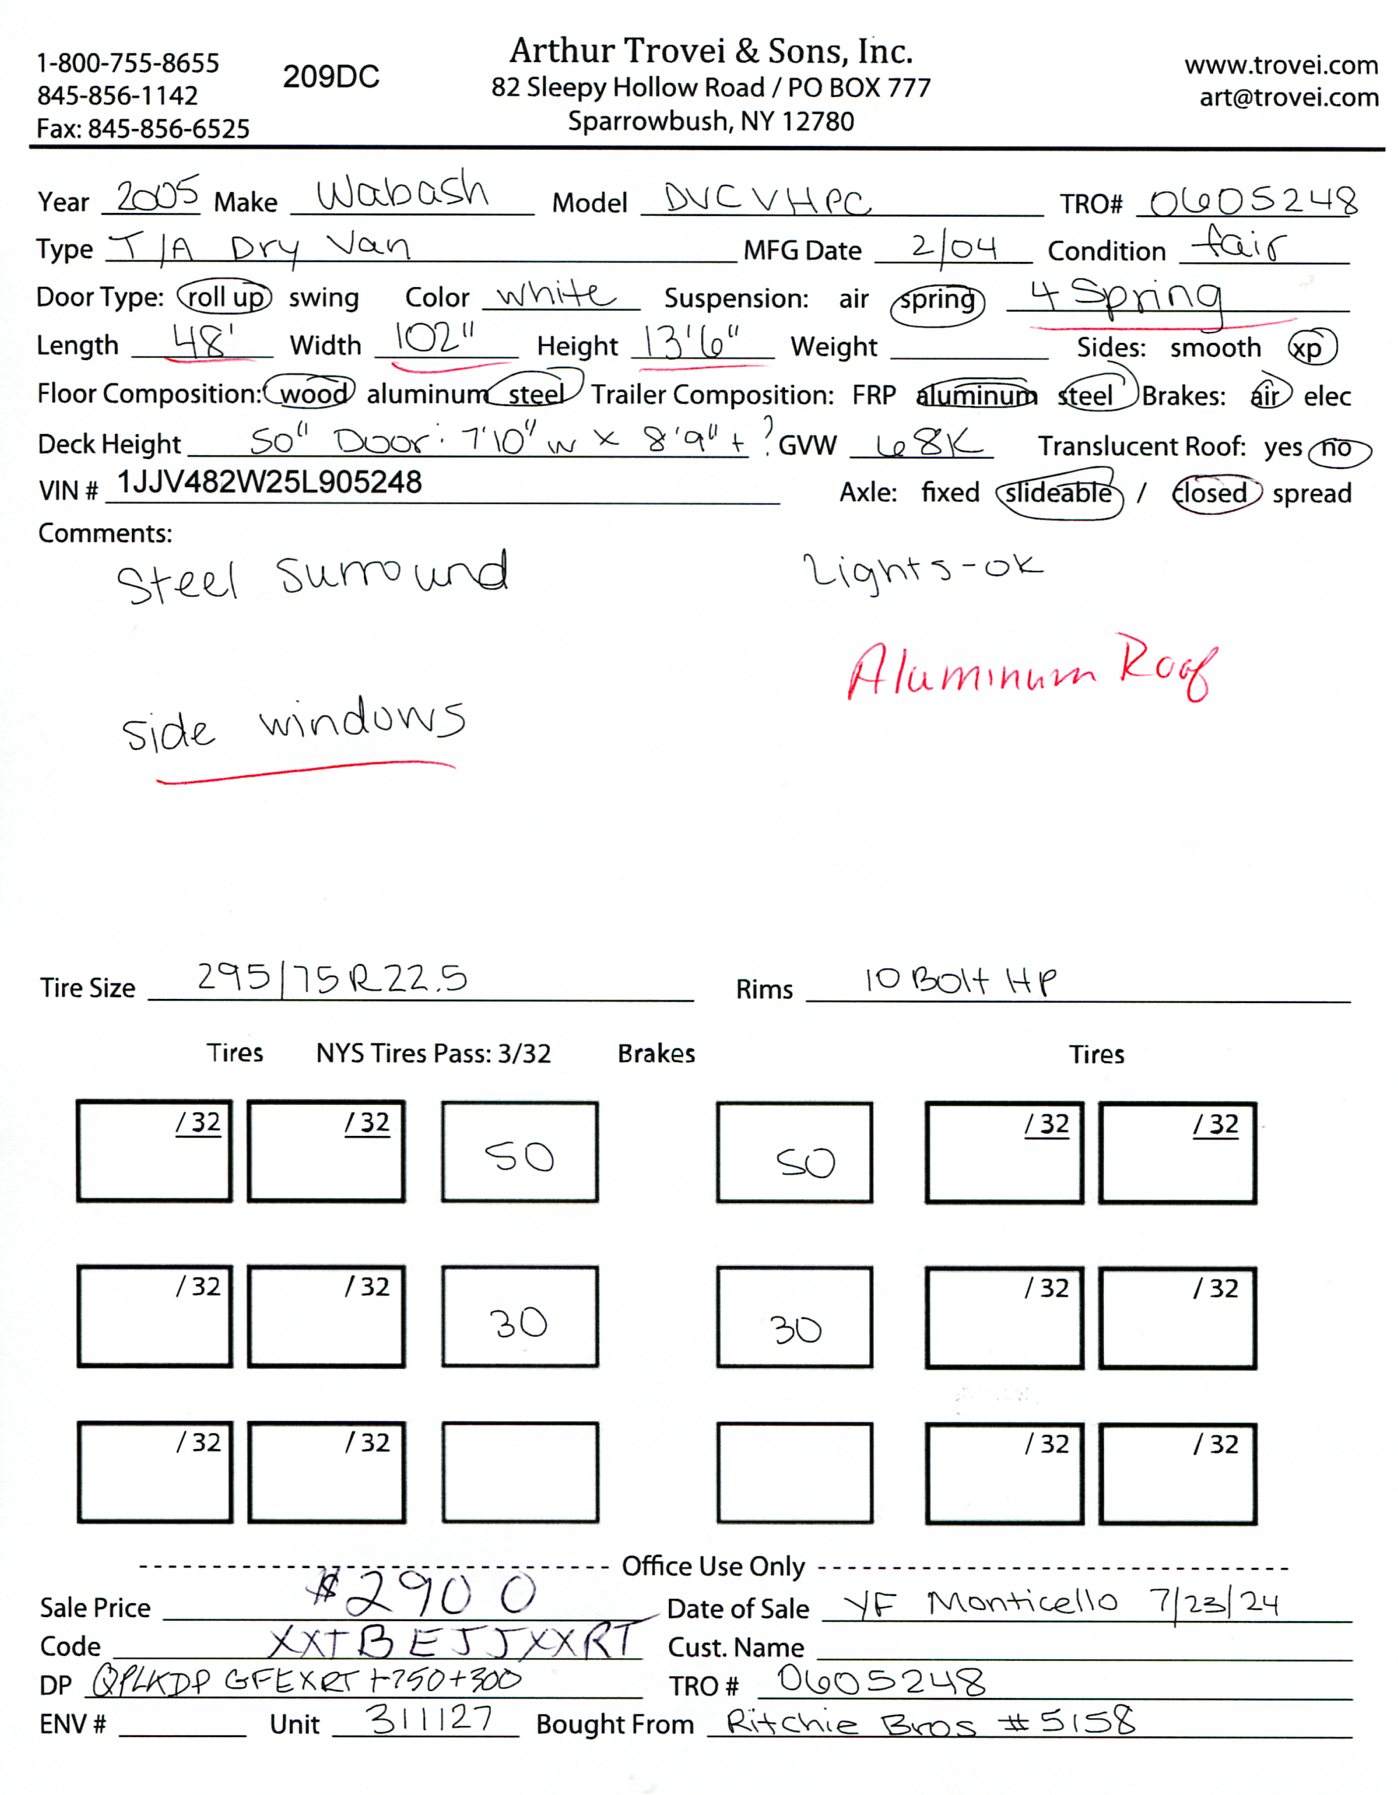 1-800-755-8655 209DC Arthur Trovei & Sons, Inc. www.trovei.com
845-856-1142 82 Sleepy Hollow Road / PO BOX 777 art@trovei.com
Fax: 845-856-6525 Sparrowbush, NY 12780
Year 2005 Make Wabash Model DVCVHPC TRO# 0605248
Type T/A Dry Van MFG Date 2/04 Condition fair
Door Type: roll up swing Color white Suspension: air spring 4 Spring
Length 48' Width 102" Height 13'6" Weight Sides: smooth xp
Floor Composition: wood aluminum steel Trailer Composition: FRP aluminum steel Brakes: air elec
Deck Height 50" Door: 7'10" w x 8'9" + ? GVW 68K Translucent Roof: yes no
VIN # 1JJV482W25L905248 Axle: fixed slideable / closed spread
Comments:
Steel Surround Lights-ok
Aluminum Roof
side windows
Tire Size 295/75R22.5 Rims 10 Bolt HP
Tires NYS Tires Pass: 3/32 Brakes Tires
/32 /32 50 50 /32 /32
/32 /32 30 30 /32 /32
/32 /32 /32 /32
Office Use Only
Sale Price $2900 Date of Sale YF Monticello 7/23/24
Code XXTBEJJXXRT Cust. Name
DP QPLKDP GFEXRT +750+300 TRO # 0605248
ENV # Unit 311127 Bought From Ritchie Bros #5158